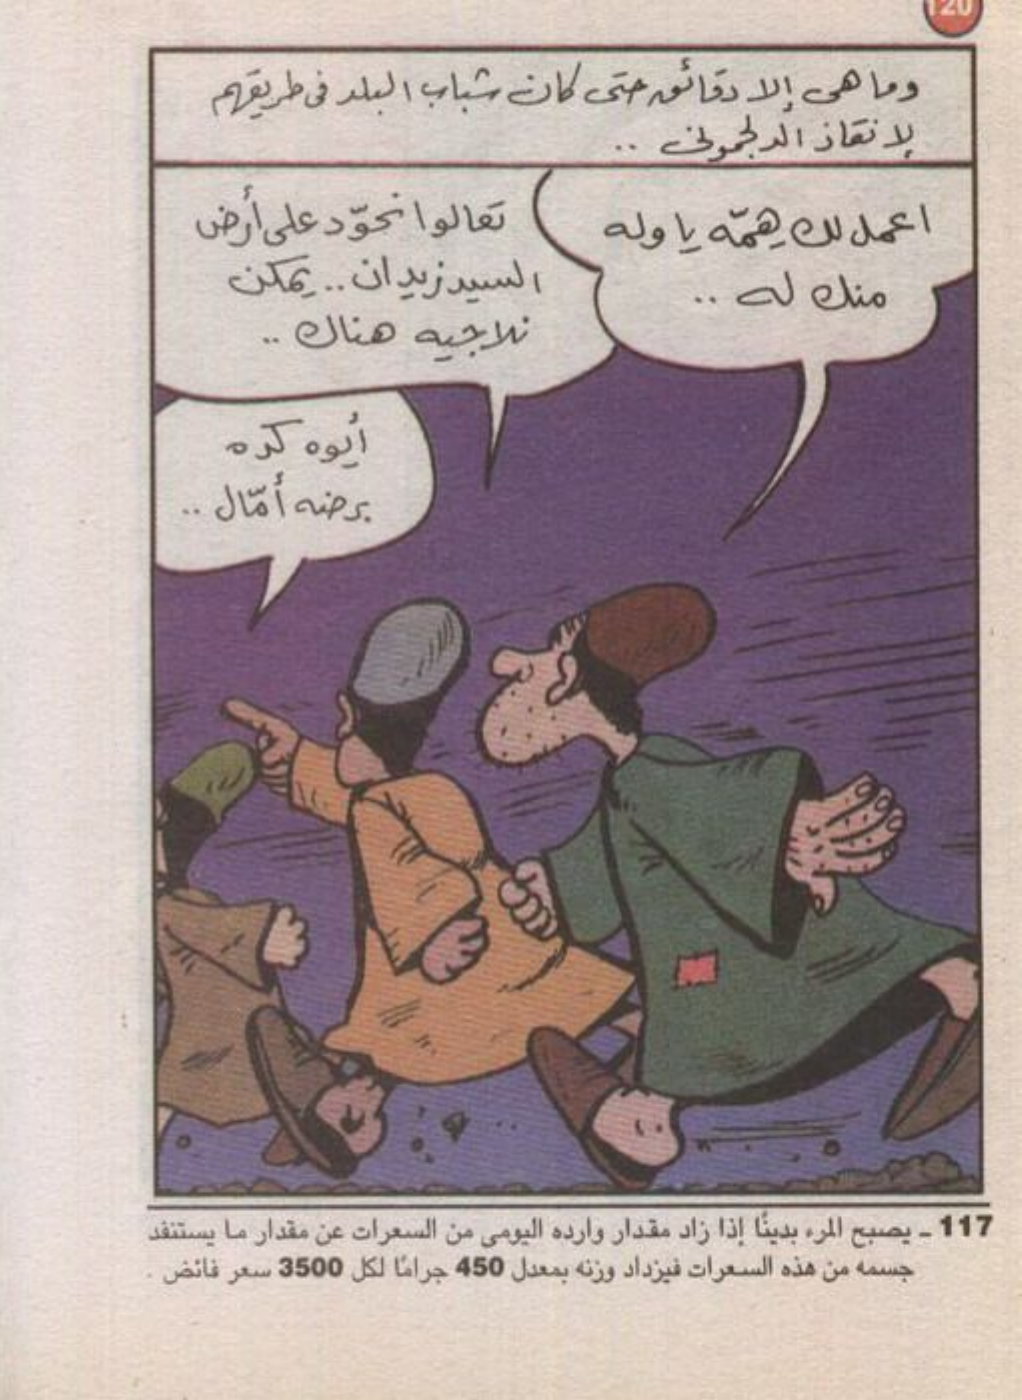 120
وما هى إلا دقائق حتى كان شباب البلد فى طريقهم
لإنقاذ الدلجمونى ..
اعمل لك همّه يا وله
منك له ..
تعالوا نحوّد على أرض
السيد زيدان .. يمكن
نلاجيه هناك ..
أيوه كده
برضه أمّال ..
117 ـ يصبح المرء بدينًا إذا زاد مقدار وارده اليومى من السعرات عن مقدار ما يستنفد
جسمه من هذه السعرات فيزداد وزنه بمعدل 450 جرامًا لكل 3500 سعر فائض .